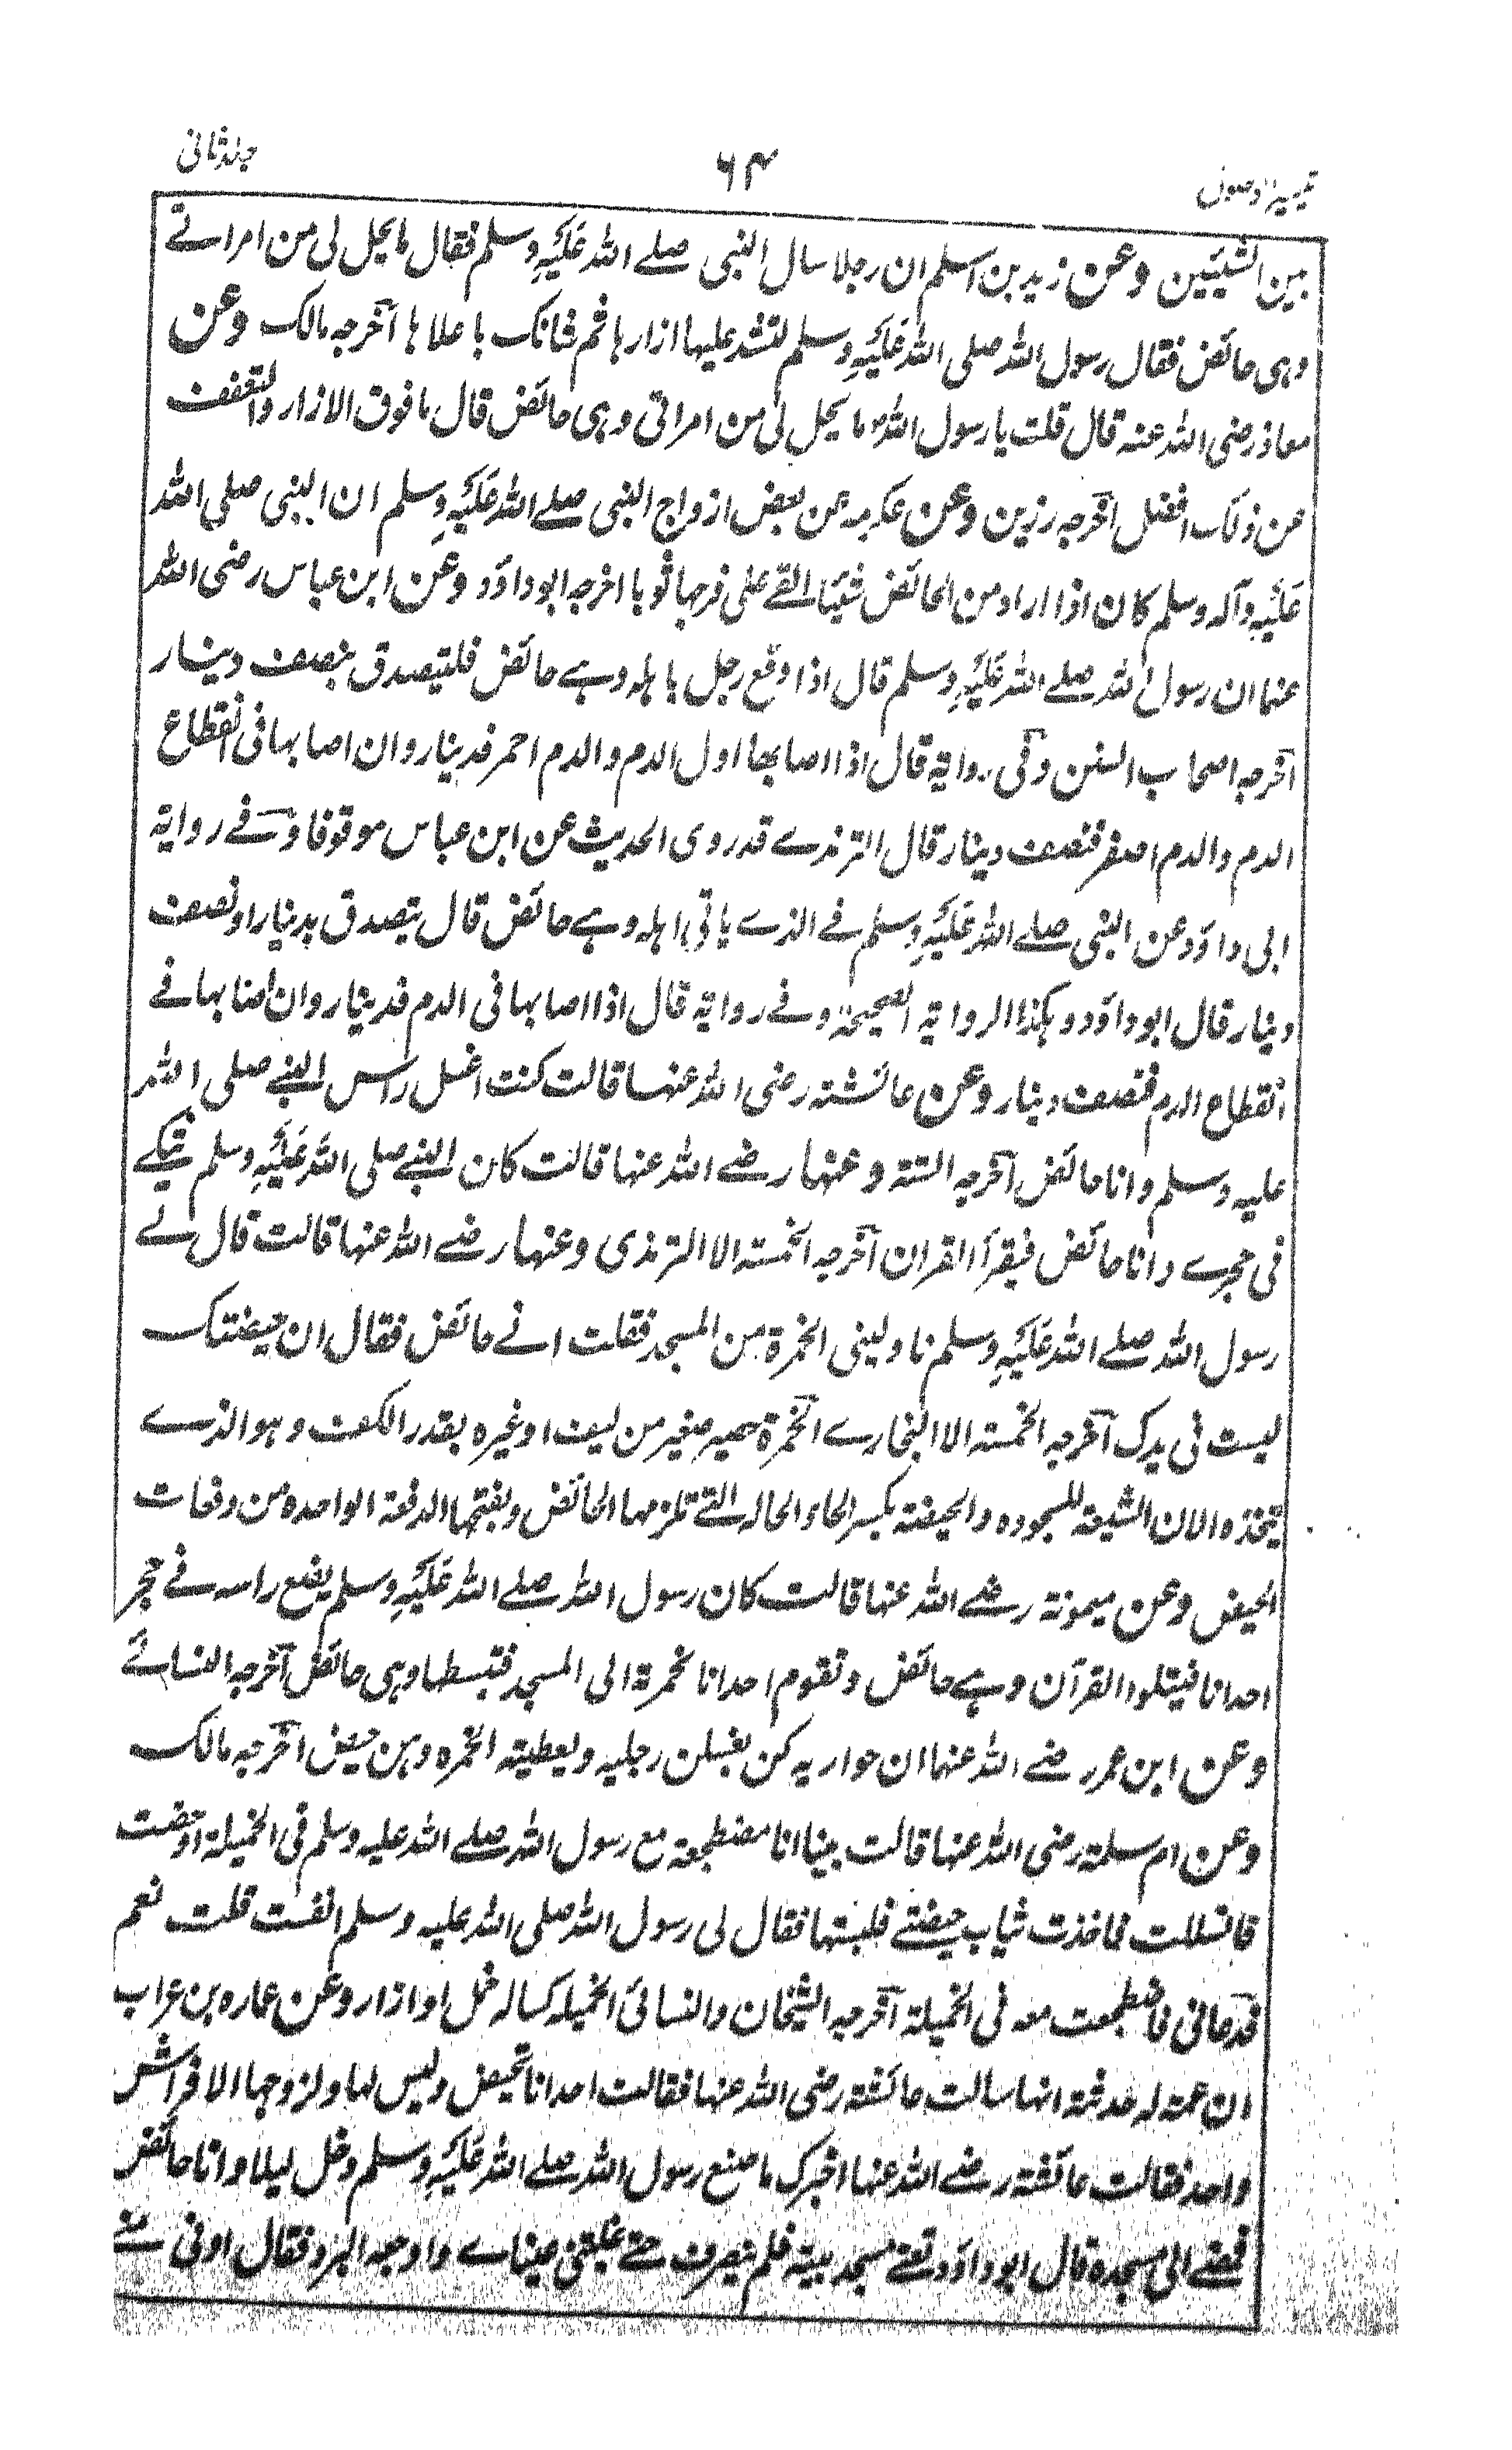 تيسير الاصول
۶۴
جلد ثانی
بين الشيئين وعن زيد بن اسلم ان رجلا سال النبی صلے الله عَلَيْهِ وسلم فقال ما يحل لی من امراتے
وہی حائض فقال رسول الله صلی الله عَلَيْهِ وسلم لتشد علیها ازارها ثم شانک باعلاها آخرجه مالک وعن
معاذ رضی الله عنه قال قلت يا رسول الله ما يحل لی من امراتی وہی حائض قال ما فوق الازار والتعفف
عن ذلک افضل اخرجه رزين وعن عکرمه عن بعض ازواج النبی صلے الله عَلَيْهِ وسلم ان النبی صلی الله
عَلَيْهِ وآله وسلم کان اذا اراد من الحائض شيئا القے علی فرجها ثوبا اخرجه ابو داؤد وعن ابن عباس رضی الله
عنها ان رسول الله صلے الله عَلَيْهِ وسلم قال اذا وقع رجل باہله وہے حائض فليتصدق بنصف دينار
آخرجه اصحاب السنن وفی رواية قال اذا اصابها اول الدم والدم احمر فدينار وان اصابها فی انقطاع
الدم والدم اصفر فنصف دينار قال الترمذے قد روی الحديث عن ابن عباس موقوفا وفے رواية
ابی داؤد عن النبی صلے الله عَلَيْهِ وسلم فے الذے ياتی اہله وہے حائض قال يتصدق بدينار او نصف
دينار قال ابو داؤد وہکذا الرواية الصحيحة وفے رواية قال اذا اصابها فی الدم فدينار وان اصابها فے
انقطاع الدم فنصف دينار وعن عائشة رضی الله عنها قالت کنت اغسل راس النبے صلی الله
عليه وسلم وانا حائض آخرجه الستة وعنها رضے الله عنها قالت کان النبے صلی الله عَلَيْهِ وسلم يتکے
فی حجرے وانا حائض فيقرأ القران آخرجه الخمسة الا الترمذی وعنها رضے الله عنها قالت قال لے
رسول الله صلے الله عَلَيْهِ وسلم ناولينی الخمرة من المسجد فقلت انے حائض فقال ان حيضتک
ليست فی يدک آخرجه الخمسة الا البخارے الخمرة حصير صغير من ليف او غيره بقدر الکف وہو الذے
يتخذه الان الشيعة للسجوده والحيضة بکسر الحاء الحاله التے تلزمها الحائض وبفتحها الدفعة الواحده من دفعات
الحيض وعن ميمونة رضے الله عنها قالت کان رسول الله صلے الله عَلَيْهِ وسلم يضع راسه فے حجر
احدانا فيتلوا القرآن وہے حائض وتقوم احدانا بخمرته الی المسجد فتبسطها وہی حائض آخرجه النسائے
وعن ابن عمر رضے الله عنها ان جواريه کن يغسلن رجليه ويعطينه الخمره وہن حيض اخرجه مالک
وعن ام سلمة رضی الله عنها قالت بينا انا مضطجعة مع رسول الله صلے الله عليه وسلم فی الخميلة اذ حضت
فانسللت فاخذت ثياب حيضتے فلبستها فقال لی رسول الله صلی الله عليه وسلم انفست قلت نعم
فدعانی فاضطجعت معه فی الخميلة آخرجه الشيخان والنسائی الخميله کساله خمل او ازار وعن عماره بن غراب
ان عمة له حدثته انها سالت عائشة رضی الله عنها فقالت احدانا تحيض وليس لها ولزوجها الا فراش
واحد فقالت عائشة رضے الله عنها اخبرک ما صنع رسول الله صلے الله عَلَيْهِ وسلم دخل ليلا وانا حائض
فمضے الی مسجده قال ابو داؤد تعنے مسجد بيته فلم ينصرف حتے غلبتنی عينای واوجعه البرد فقال ادنی منے